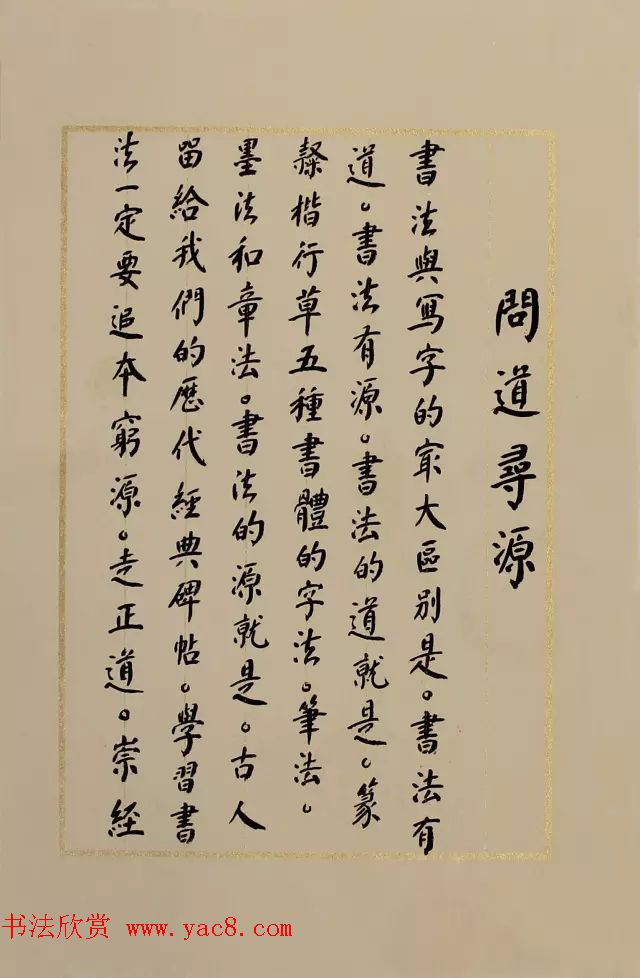 問道尋源
書法與寫字的㝡大區別是。書法有
道。書法有源。書法的道就是。篆
隸楷行草五種書體的字法。筆法。
墨法和章法。書法的源就是。古人
留給我們的歷代經典碑帖。學習書
法一定要追本窮源。走正道。崇經
书法欣赏 www.yac8.com